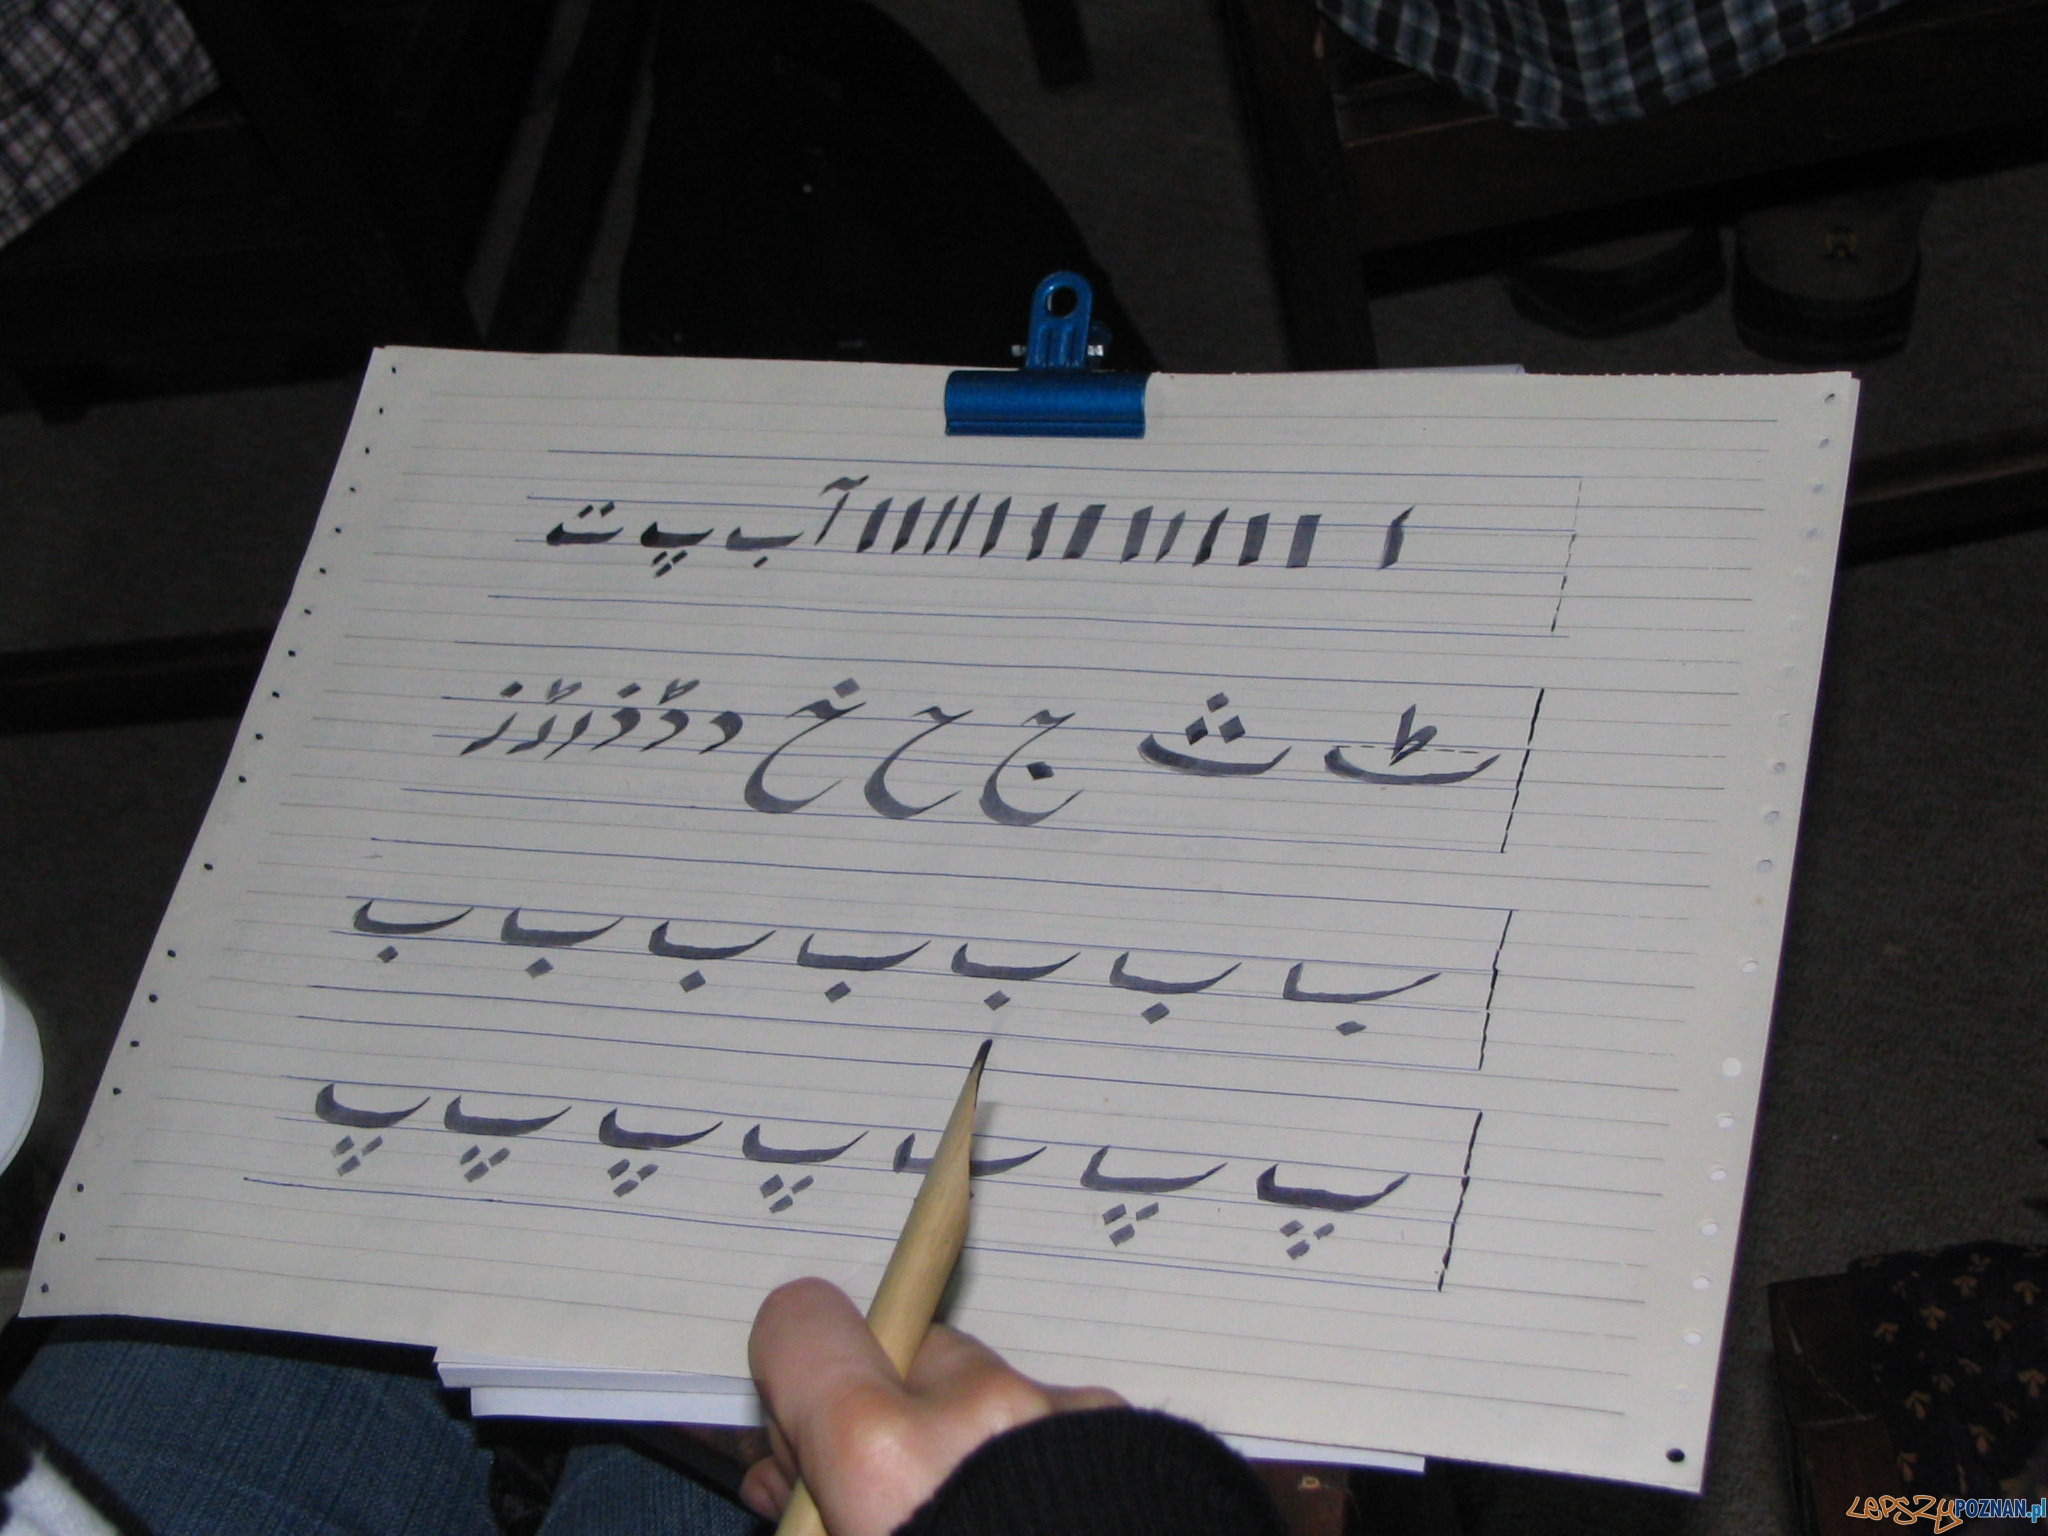 ا ا ا ا ا ا ا ا ا ا ا ا ا ا آ ب پ ت
ٹ ث ج ح خ د ڈ ذ ر ڑ ز
ب ب ب ب ب ب ب
پ پ پ پ پ پ پ
LEPSZYPOZNAN.pl